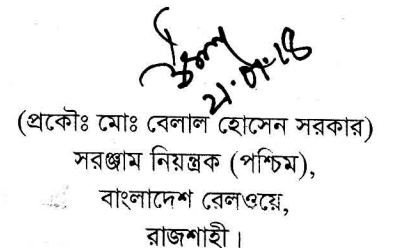 (প্রকৌঃ মোঃ বেলাল হোসেন সরকার)
সরঞ্জাম নিয়ন্ত্রক (পশ্চিম),
বাংলাদেশ রেলওয়ে,
রাজশাহী।